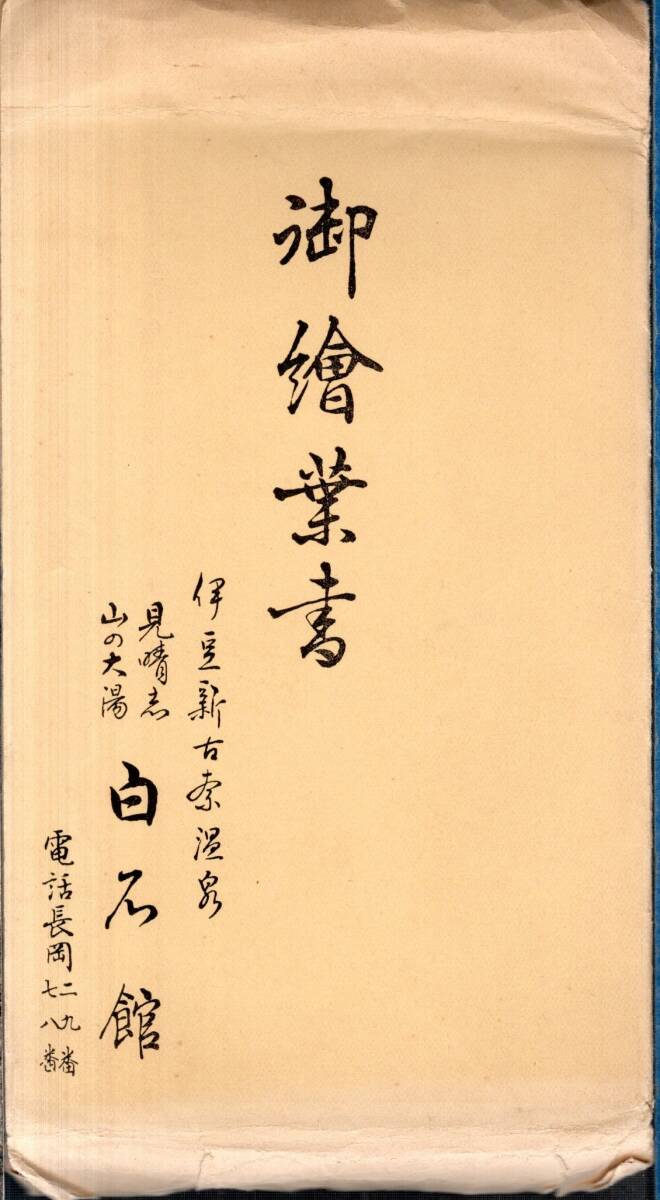 御繪葉書
伊豆新古奈温泉
見晴志
山の大湯
白石館
電話長岡
二九番
七八番